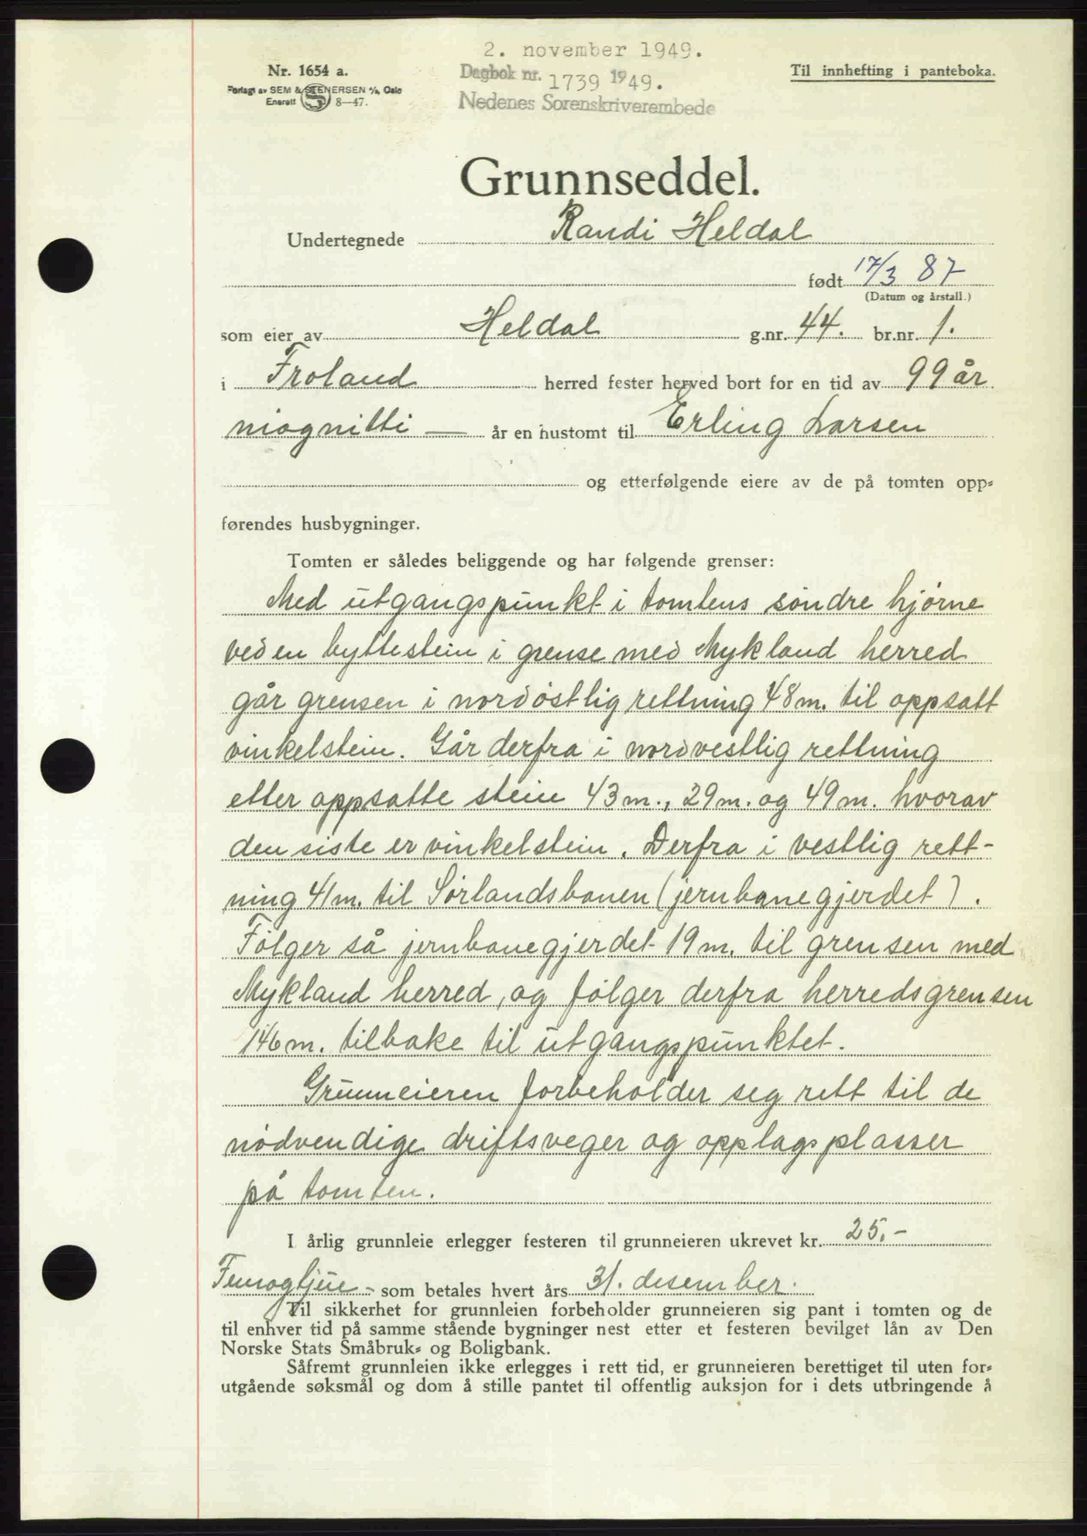 2. november 1949.
Nr. 1654 a.
Dagbok nr. 1739 1949.
Til innhefting i panteboka.
Forlagt av SEM & STENERSEN A/S, Oslo
Enerett 8—47.
Nedenes Sorenskriverembede
Grunnseddel.
Undertegnede Randi Heldal
født 17/3 87
(Datum og årstall.)
som eier av Heldal g.nr. 44. br.nr. 1.
i Froland herred fester herved bort for en tid av 99 år
niognitti — år en hustomt til Erling Larsen
og etterfølgende eiere av de på tomten opp-
førendes husbygninger.
Tomten er således beliggende og har følgende grenser:
Med utgangspunkt i tomtens søndre hjørne
ved en byttestein i grense med Mykland herred
går grensen i nordøstlig rettning 48 m. til oppsatt
vinkelstein. Går derfra i nordvestlig rettning
etter oppsatte steine 43 m., 29 m. og 49 m. hvorav
den siste er vinkelstein. Derfra i vestlig rett-
ning 41 m. til Sørlandsbanen (jernbanegjerdet).
Følger så jernbanegjerdet 19 m. til grensen med
Mykland herred, og følger derfra herredsgrensen
146 m. tilbake til utgangspunktet.
Grunneieren forbeholder seg rett til de
nødvendige driftsveger og opplagsplasser
på tomten.
I årlig grunnleie erlegger festeren til grunneieren ukrevet kr. 25.-
Femogtjue - som betales hvert års 31. desember.
Til sikkerhet for grunnleien forbeholder grunneieren sig pant i tomten og de
til enhver tid på samme stående bygninger nest etter et festeren bevilget lån av Den
Norske Stats Småbruk- og Boligbank.
Såfremt grunnleien ikke erlegges i rett tid, er grunneieren berettiget til uten for-
utgående søksmål og dom å stille pantet til offentlig auksjon for i dets utbringende å